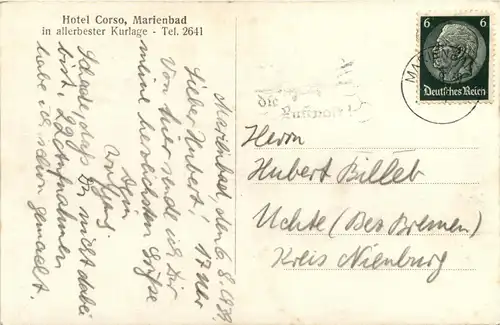 Hotel Corso, Marienbad
in allerbester Kurlage - Tel. 2641
Marienbad, den 6.8.1939.
17 Uhr
Lieber Hubert!
Von hier sende ich Dir
meine herzlichsten Grüße
Dein
Schade, daß Du nicht dabei
bist. 22 Aufnahmen
habe ich schon gemacht.
6 6
Deutsches Reich
die
Luftpost!
Herrn
Hubert Billeb
Uchte (Bez Bremen)
Kreis Nienburg